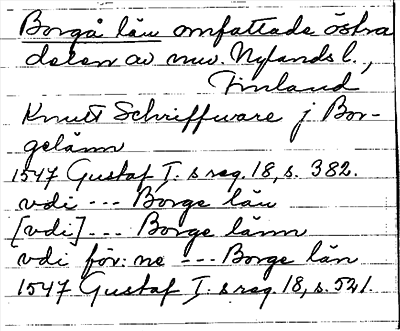 Borgå län omfattade östra
delen av nuv. Nylands l.,
Finland
Knutt Schriffware j Bor-
gelänn
1547 Gustaf I. s reg. 18, s. 382.
vdi --- Borge län
[vdi] --- Borge länn
vdi för: ne --- Borge län
1547 Gustaf I. s reg. 18, s. 521.